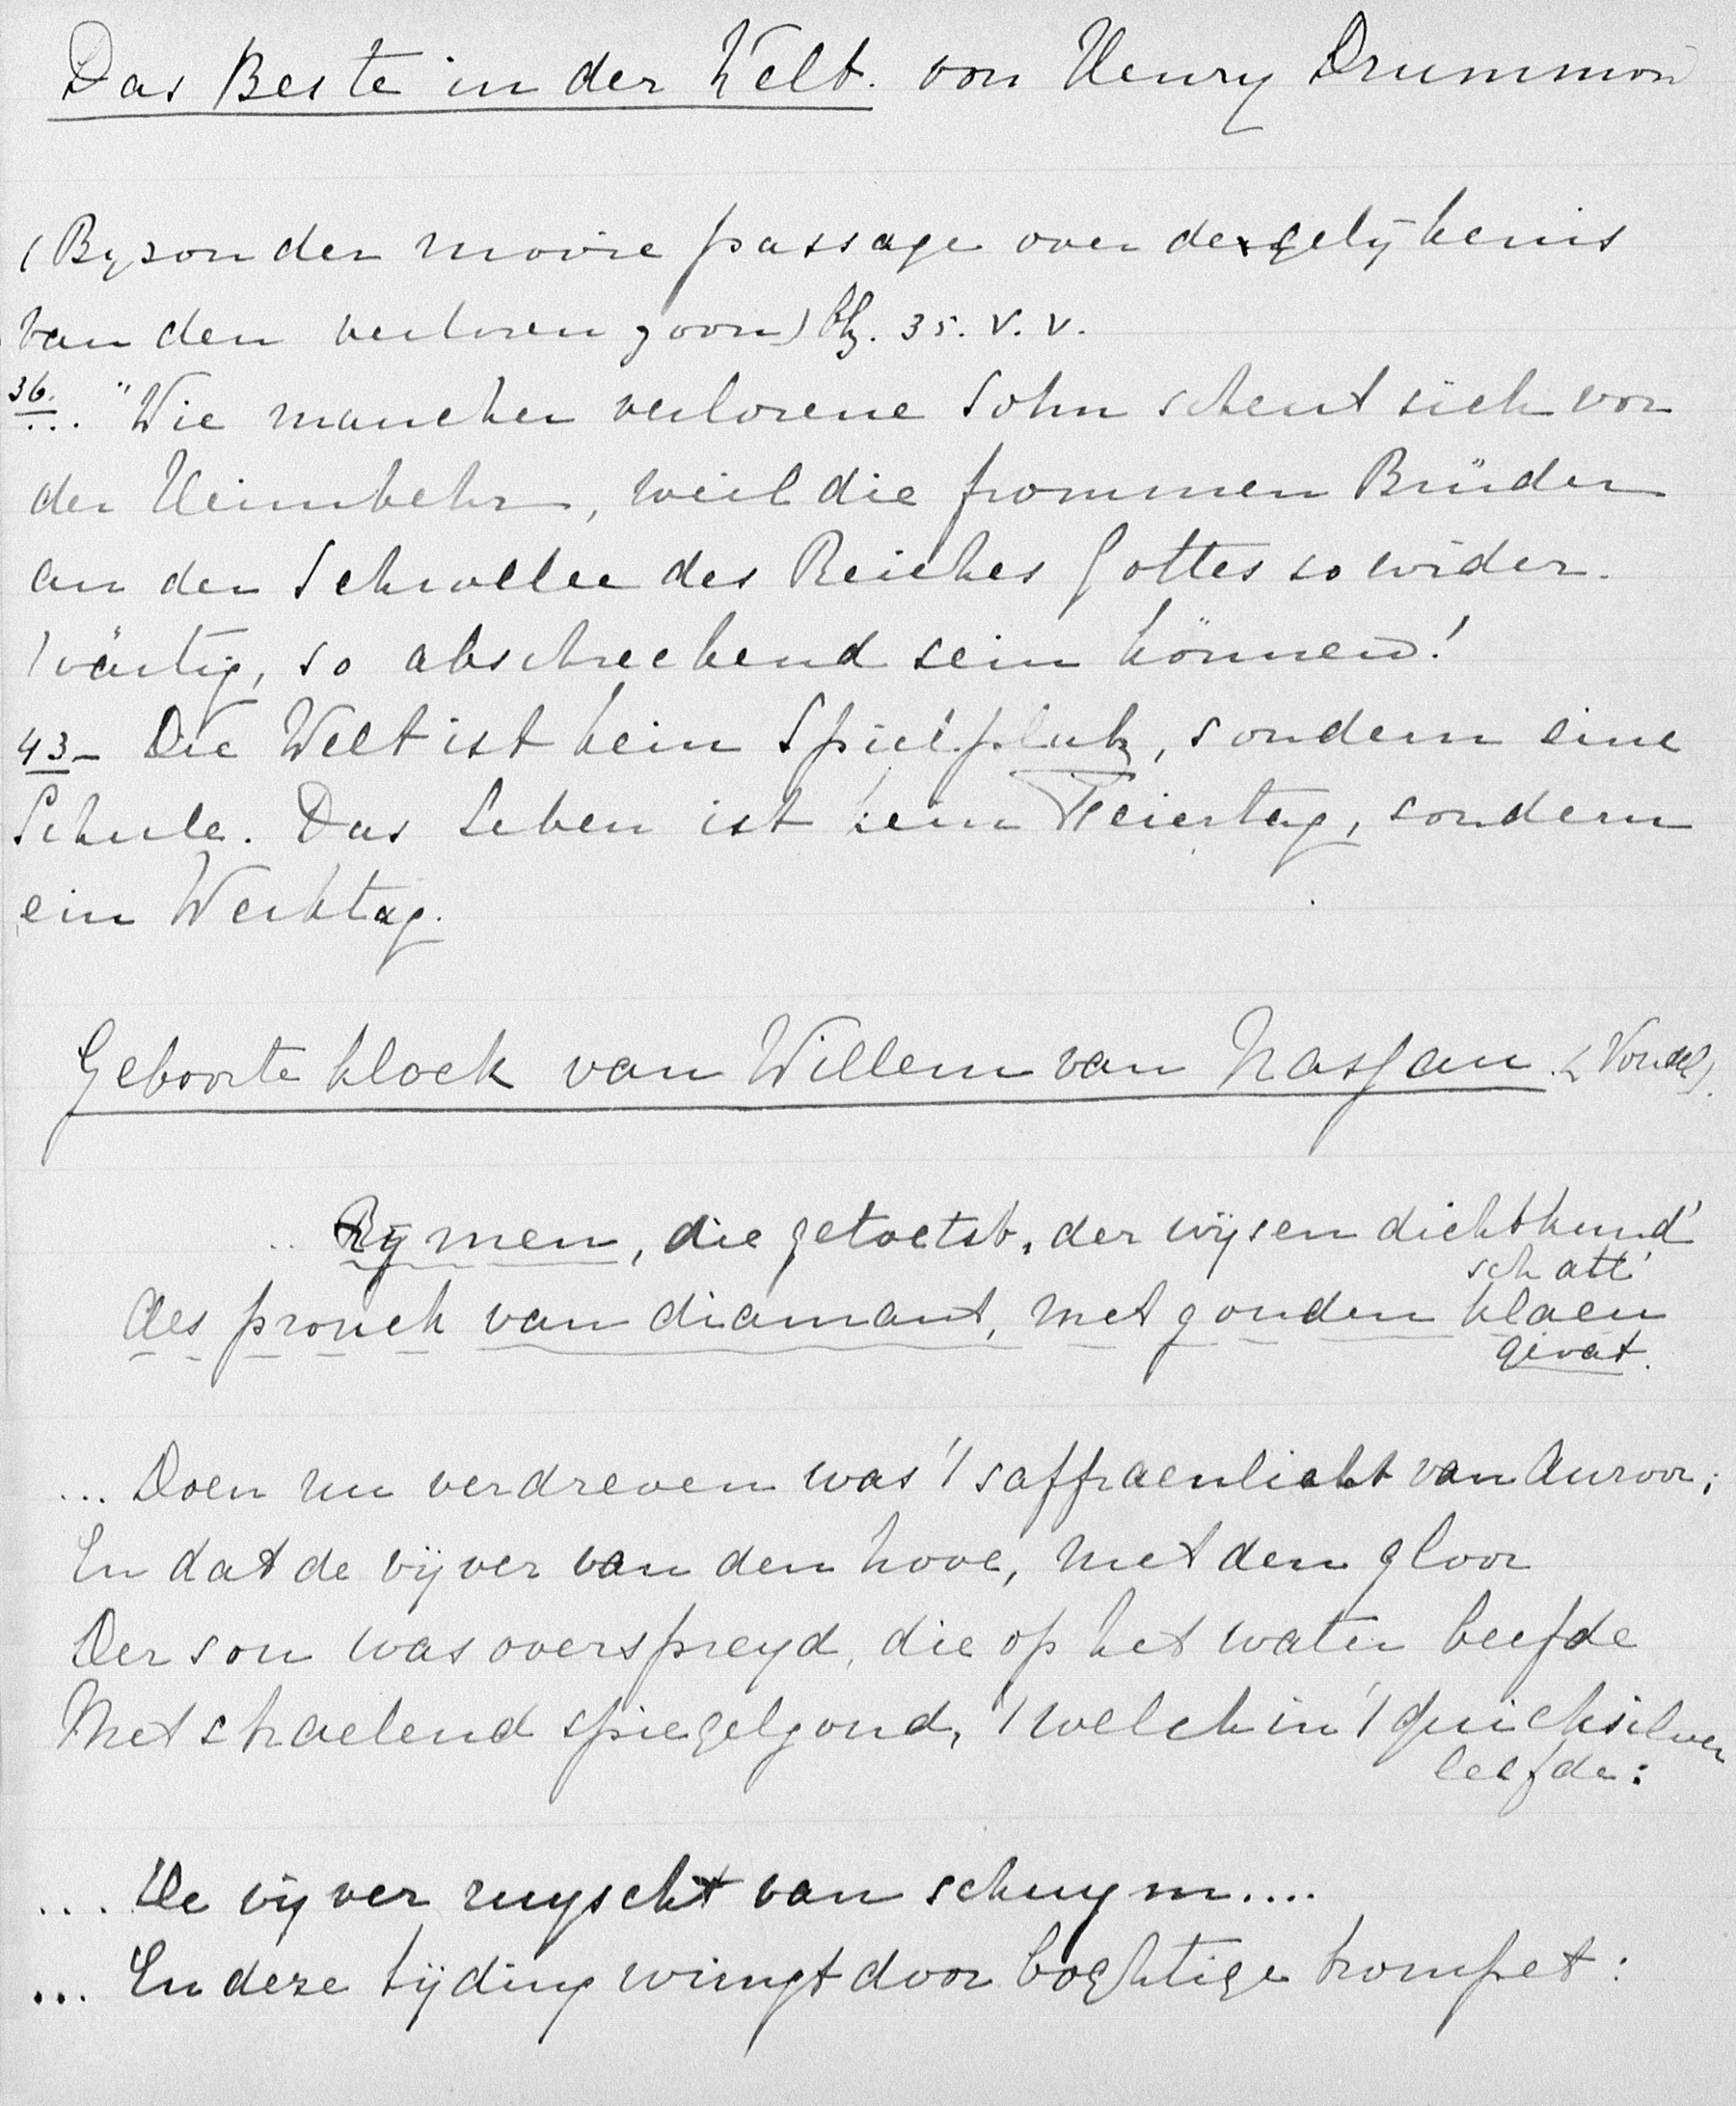 Das Beste in der Welt. von Henry Drummon
(Byzonder mooie passage over de gelijkenis
van den verloren zoon) blz. 35. v. v.
36. ... "Wie mancher verlorene Sohn scheut sich vor
der Heimkehr, weil die frommen Brüder
an der Schwelle des Reiches Gottes so wider-
wärtig, so abschreckend sein können!
43 - Die Welt ist kein Spielplatz, sondern eine
Schule. Das Leben ist kein Feiertag, sondern
ein Werktag.
Geboorteklock van Willem van Nassau. (Vondel).
.. Rymen, die getoetst, der wijsen dichtkund'
schatt'
Als pronck van diamant, met gouden klaeu
gevat.
... Doen nu verdreven was 't saffraenlicht van Auroor;
En dat de vijver van den hove, met den gloor
Der son was overspreyd, die op het water beefde
Met straelend spiegelgoud, 't welck in 't quicksilver
leefde:
.... De vijver ruyscht van schuym....
... En deze tijding wringt door boghtige trompet: